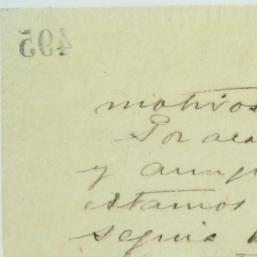 495
motivos
Por aca
y aunq
estamos
seguir